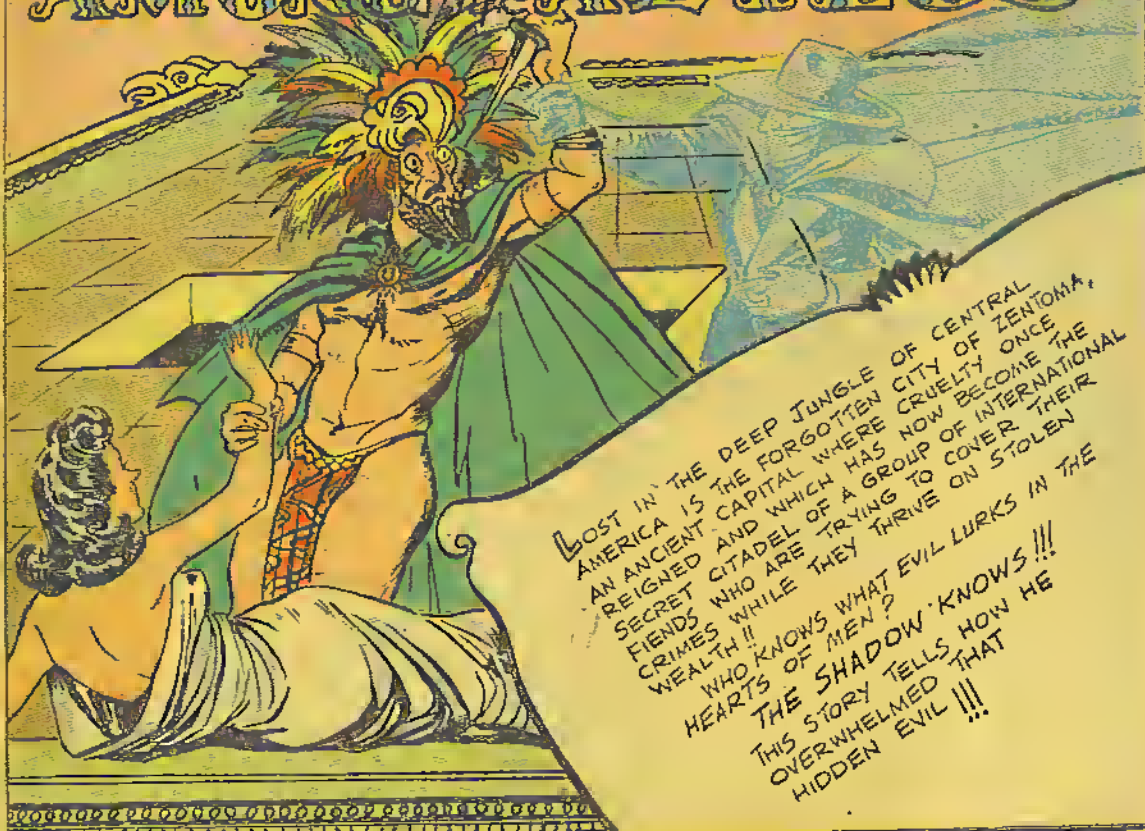 LOST IN THE DEEP JUNGLE OF CENTRAL
AMERICA IS THE FORGOTTEN CITY OF ZENTOMA,
AN ANCIENT CAPITAL WHERE CRUELTY ONCE
REIGNED AND WHICH HAS NOW BECOME THE
SECRET CITADEL OF A GROUP OF INTERNATIONAL
FIENDS WHO ARE TRYING TO COVER THEIR
CRIMES WHILE THEY THRIVE ON STOLEN
WEALTH!!
WHO KNOWS WHAT EVIL LURKS IN THE
HEARTS OF MEN?
THE SHADOW KNOWS!!!
THIS STORY TELLS HOW HE
OVERWHELMED THAT
HIDDEN EVIL!!!